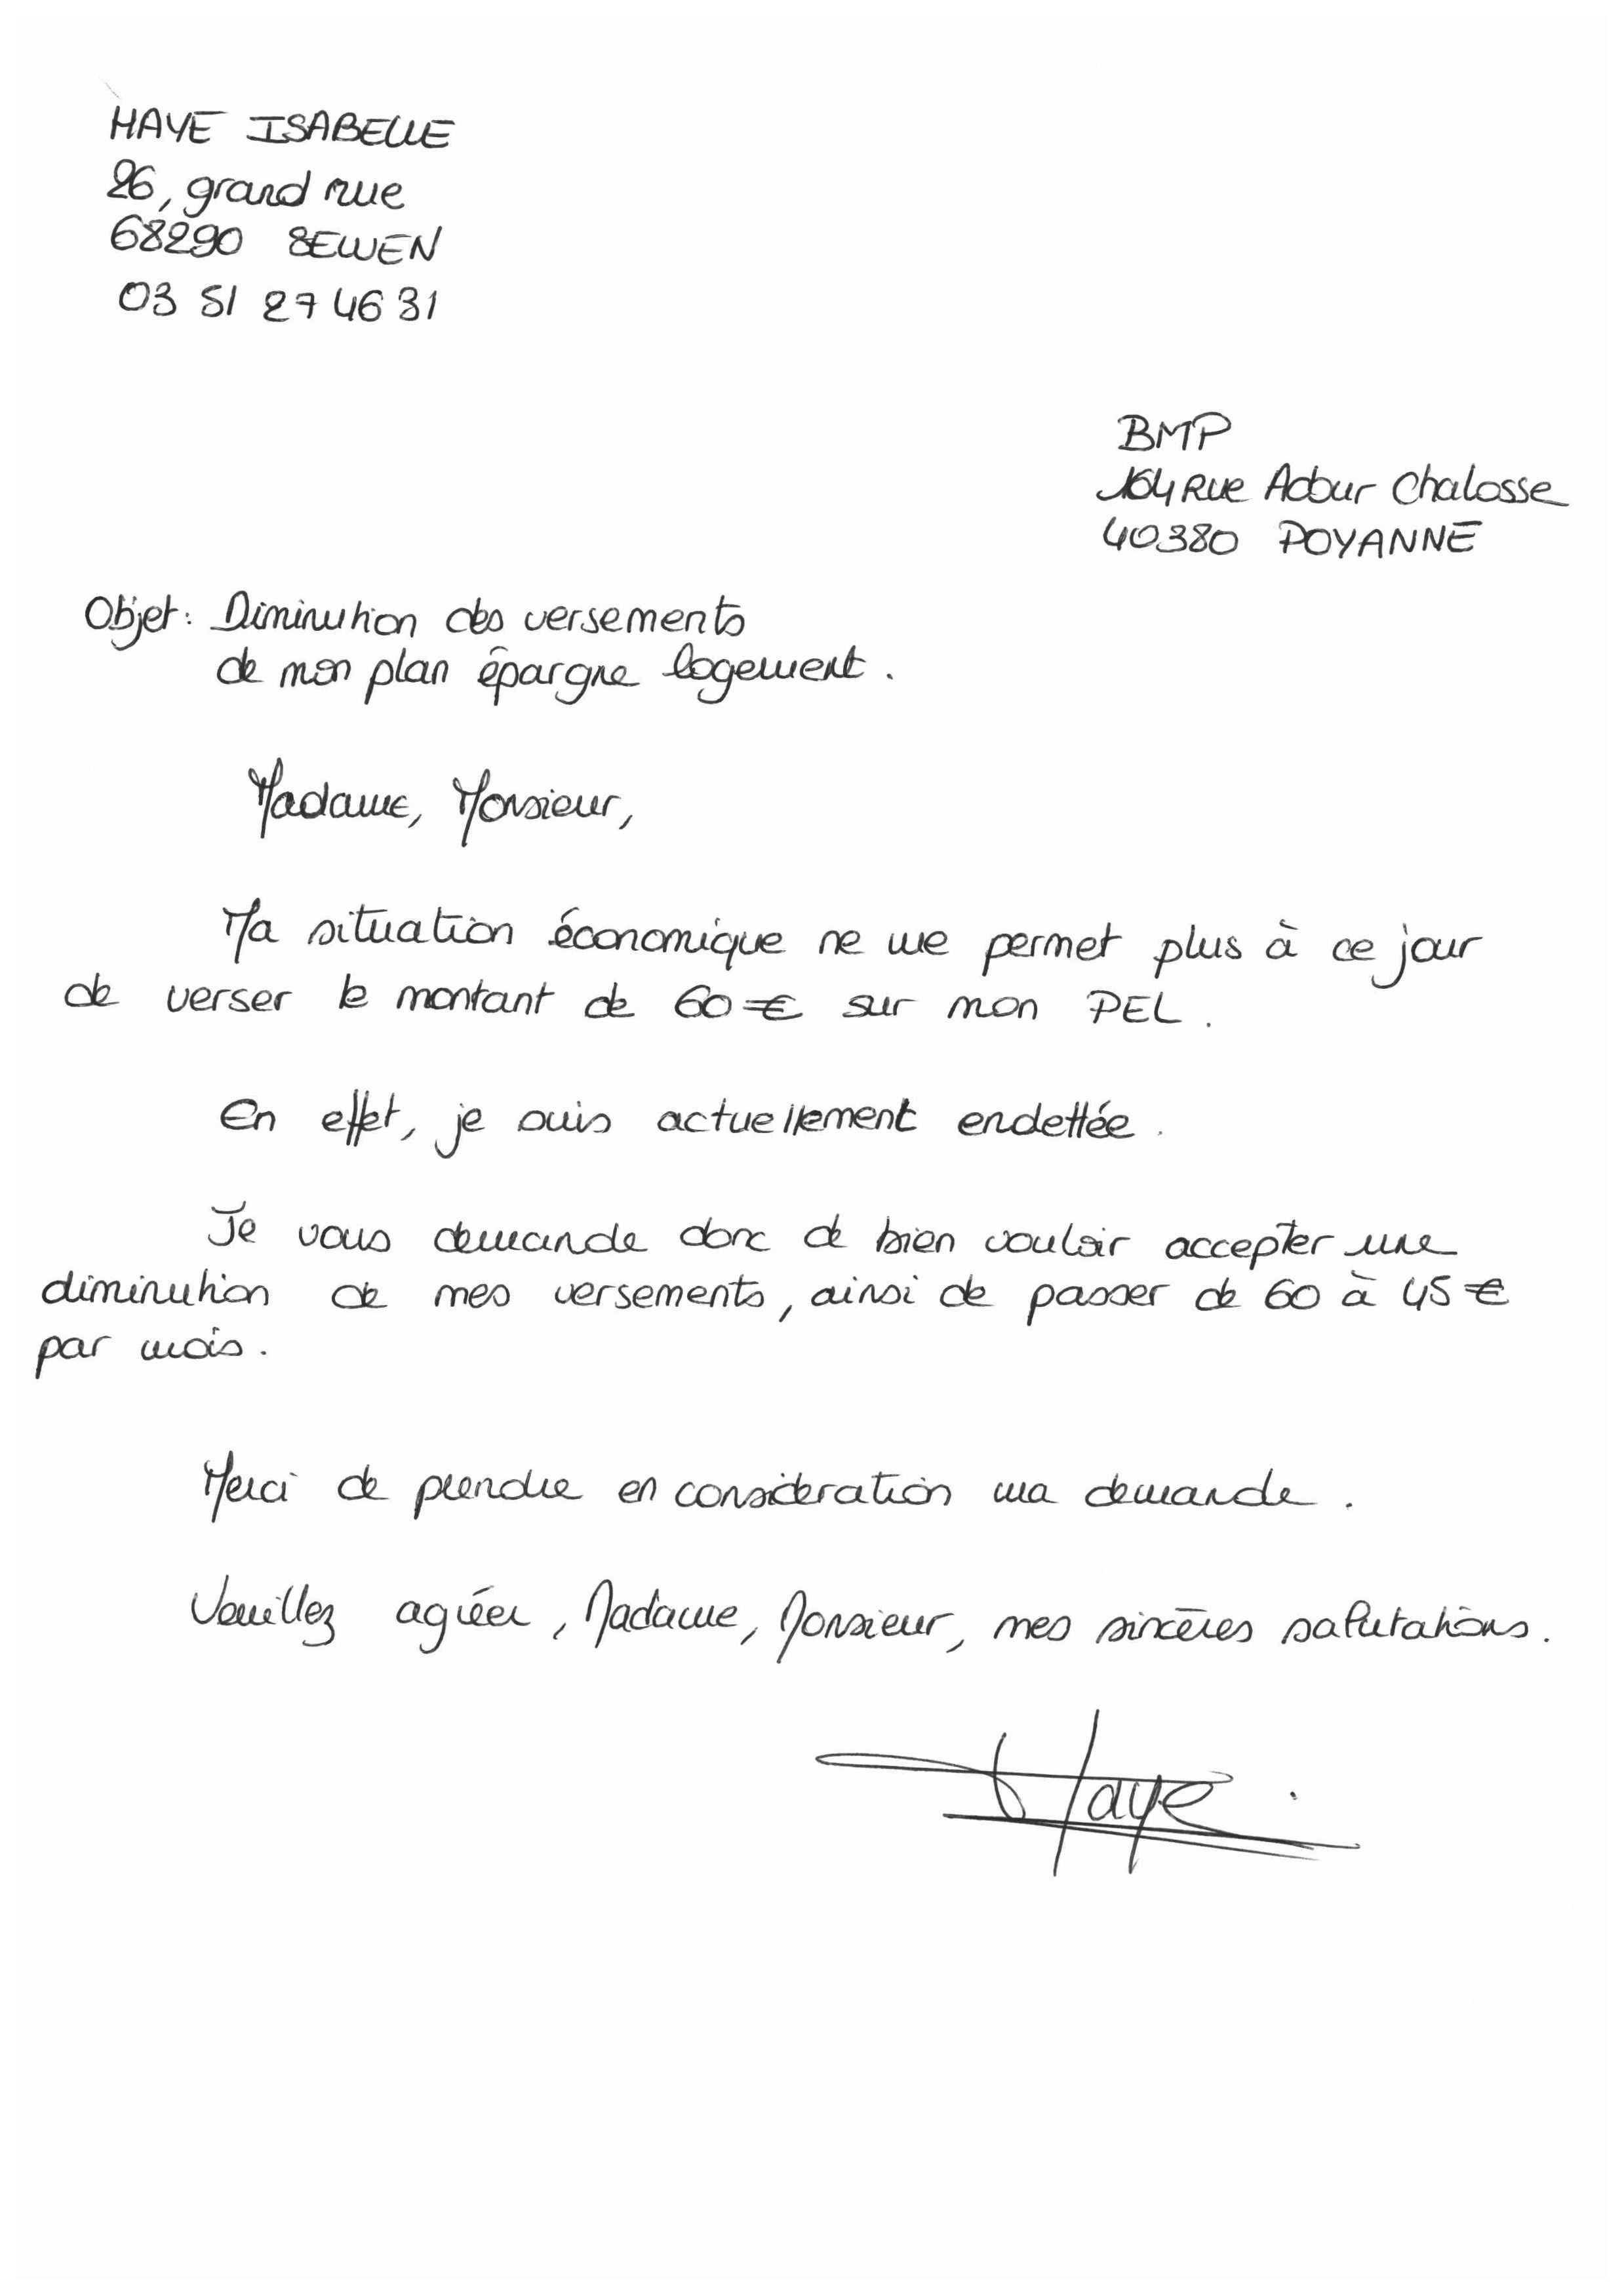 HAYE ISABELLE
26, grand rue
68290 SEWEN
03 51 27 46 31
BMP
164 Rue Adour Chalosse
40380 POYANNE
Objet : Diminution des versements
de mon plan épargne logement.
Madame, Monsieur,
Ma situation économique ne me permet plus à ce jour
de verser le montant de 60 € sur mon PEL.
En effet, je suis actuellement endettée.
Je vous demande donc de bien vouloir accepter une
diminution de mes versements, ainsi de passer de 60 à 45 €
par mois.
Merci de prendre en consideration ma demande.
Veuillez agréer, Madame, Monsieur, mes sincères salutations.
Haye